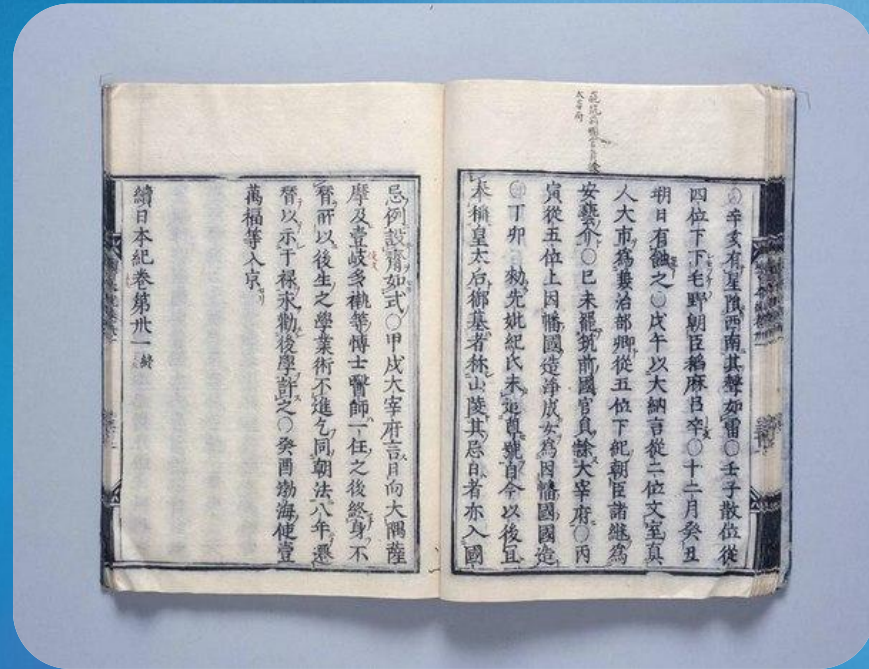 ○辛亥有星隕西南其聲如雷○壬子散位從
四位下下毛野朝臣稻麻呂卒○十二月癸丑
朔日有蝕之○戊午以大納言從二位文室真
人大市為兼治部卿從五位下紀朝臣諸繼為
安藝介○己未罷筑前國官員隸大宰府○丙
寅從五位上因幡國造淨成女為因幡國國造
○丁卯勅先妣紀氏未追尊號自今以後宜
奉稱皇太后御墓者稱山陵其忌日者亦入國
忌例設齋如式○甲戌大宰府言日向大隅薩
摩及壹岐多褹等博士醫師一任之後終身不
替所以後生之學業術不進乞同朝法八年遷
替以示干祿永勸後學許之○癸酉渤海使壹
萬福等入京
續日本紀卷第卅一終